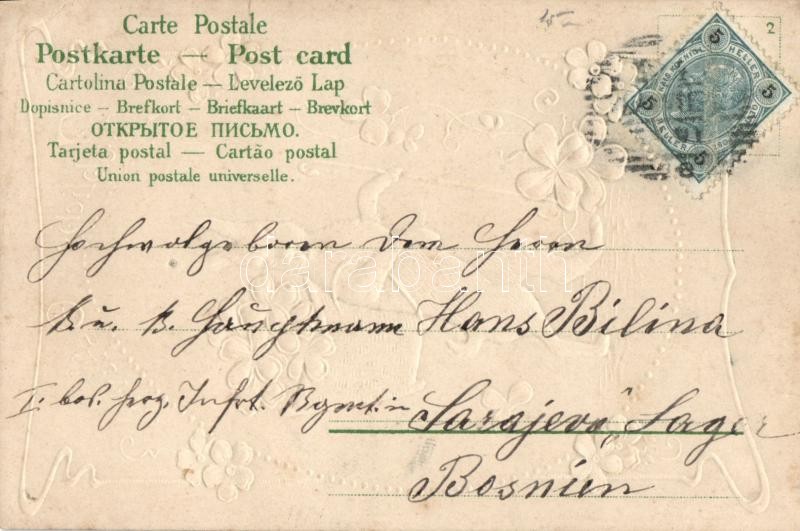 Carte Postale
Postkarte — Post card
Cartolina Postale — Levelező Lap
Dopisnice — Brefkort — Briefkaart — Brevkort
ОТКРЫТОЕ ПИСЬМО.
Tarjeta postal — Cartão postal
Union postale universelle.
2
5 HELLER
5
5
5 HELLER
Hochwolgeboren dem Herrn
k. u. k. Hauptmann Hans Bilina
I. bos. herz. Infrt. Rgmt. in Sarajevo, Lager
Bosnien
darabanth